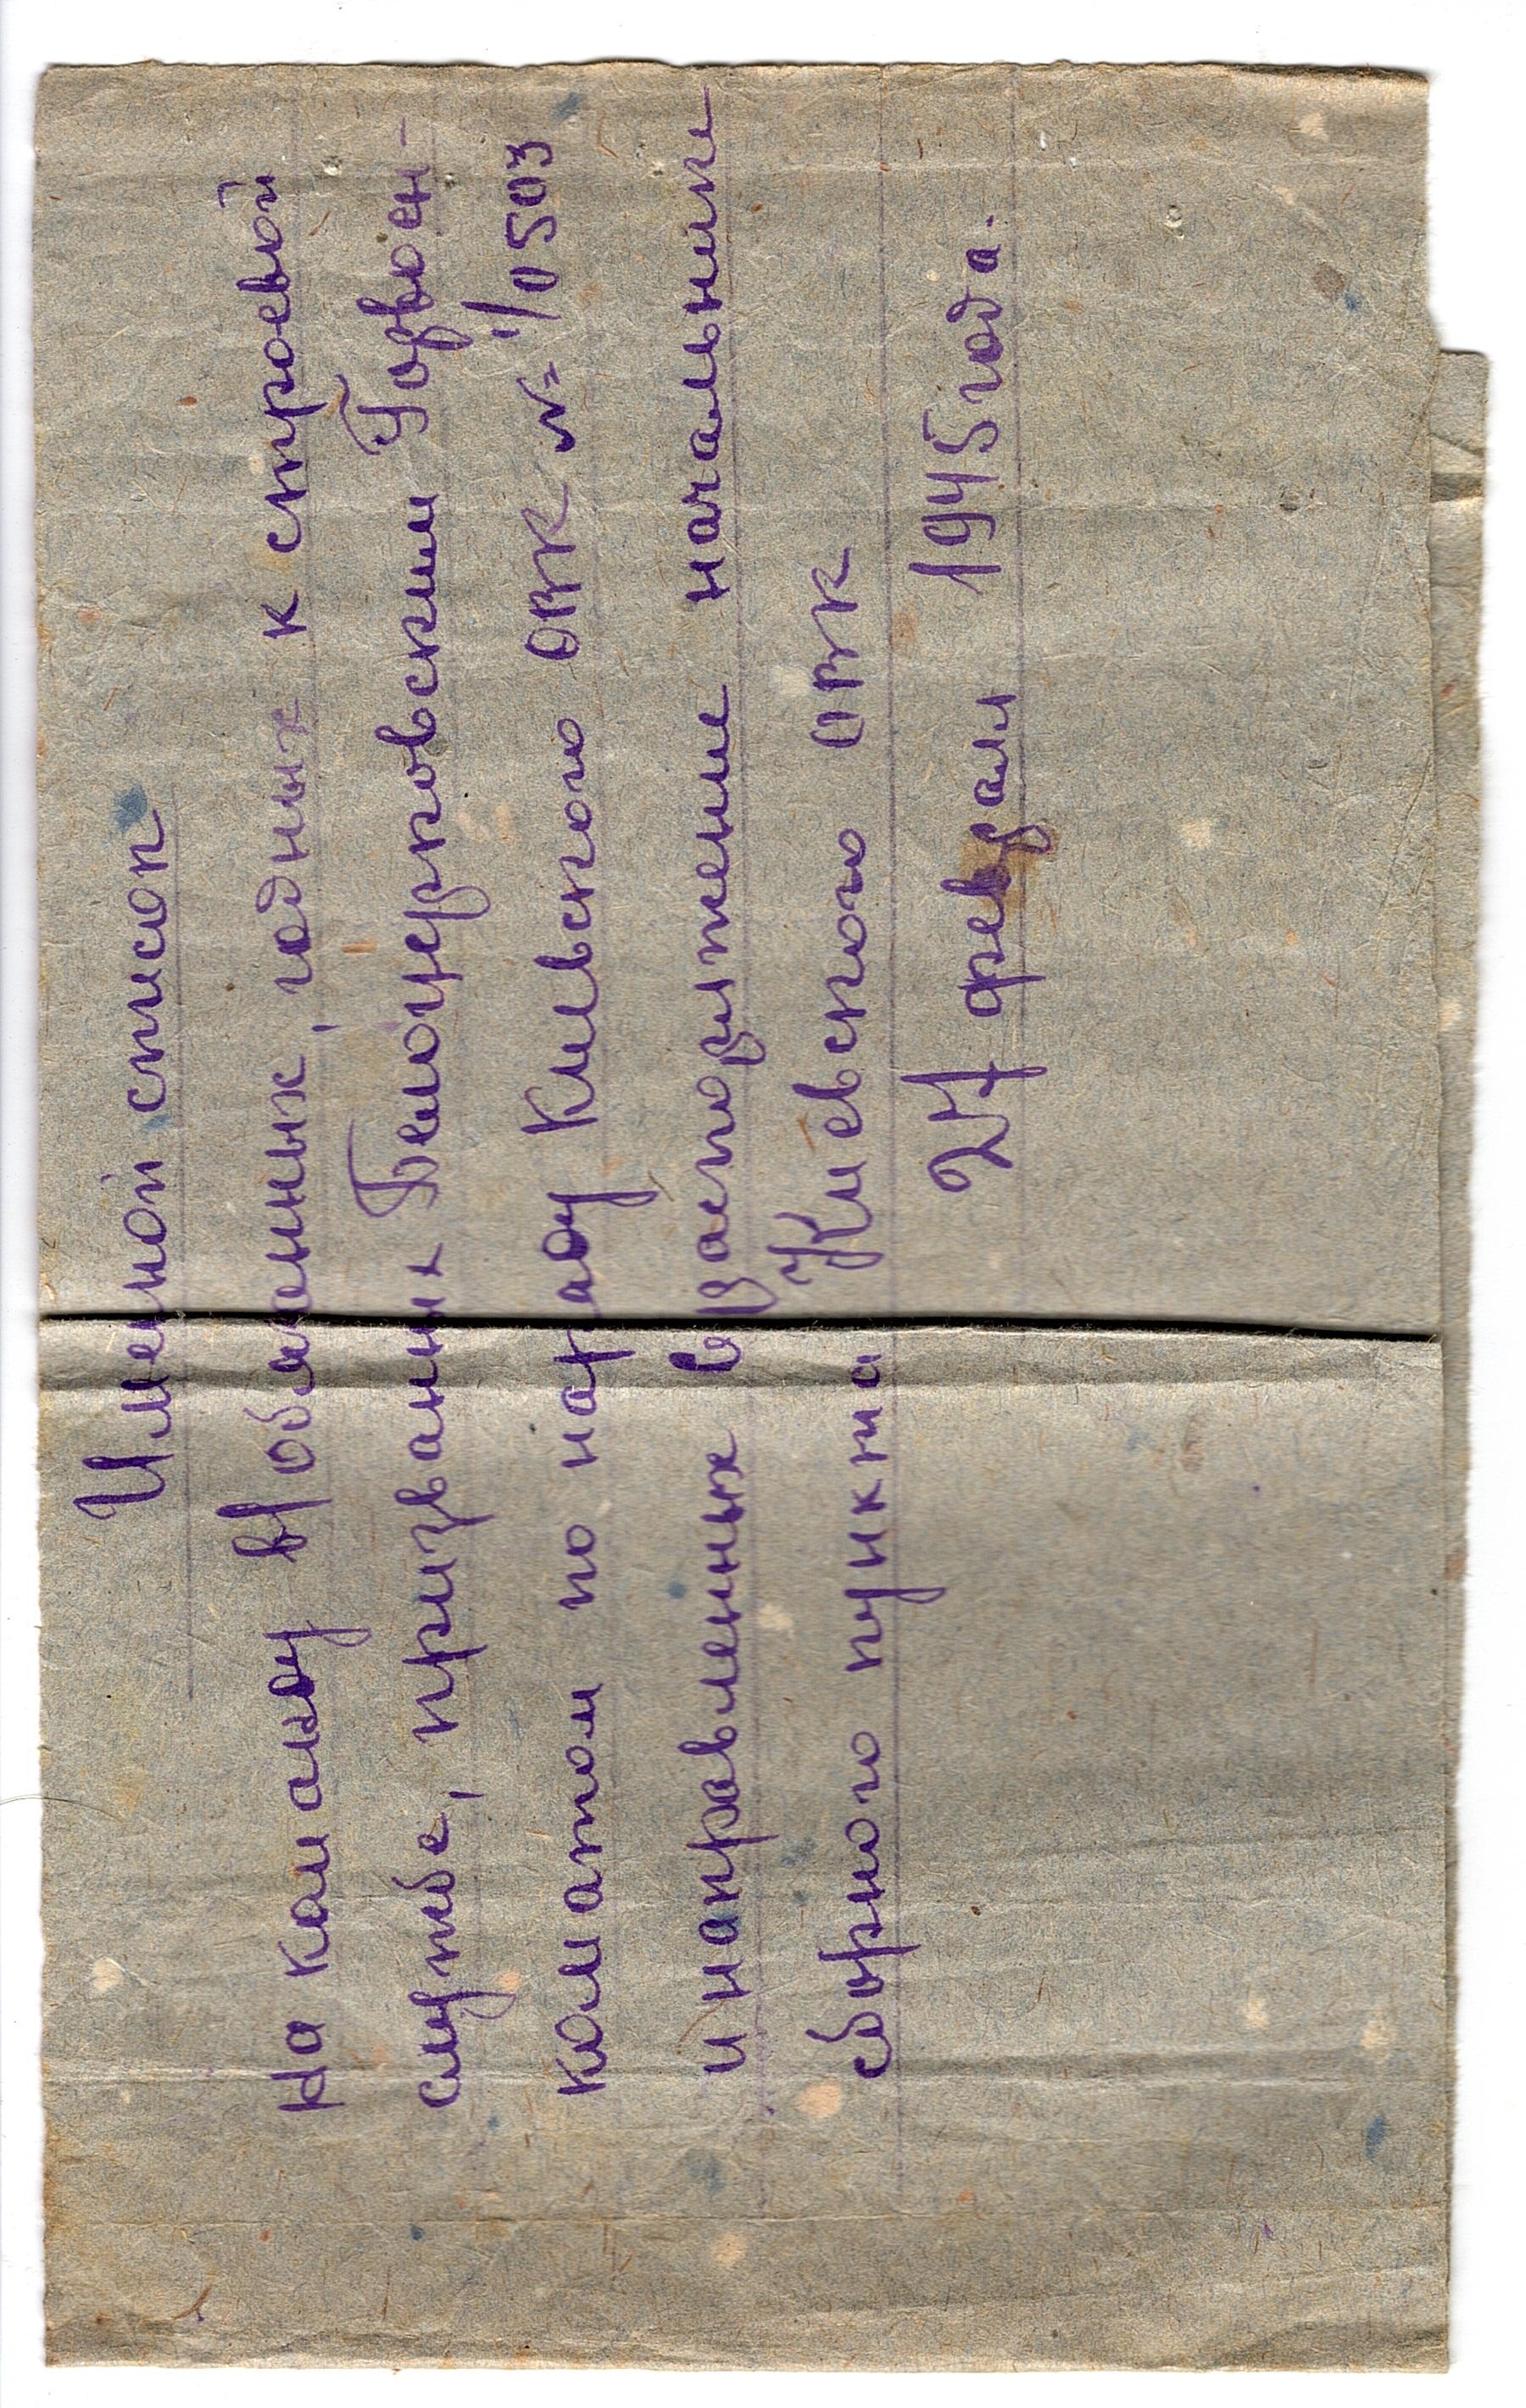 Именной список
на команду в/обязанных, годных к строевой
службе, призванных Белоцерковским Горвоен-
коматом по наряду Киевского ОВК № 1/0503
и направленные в распоряжение начальника
сборного пункта Киевского ОВК
27 февраля 1945 года.